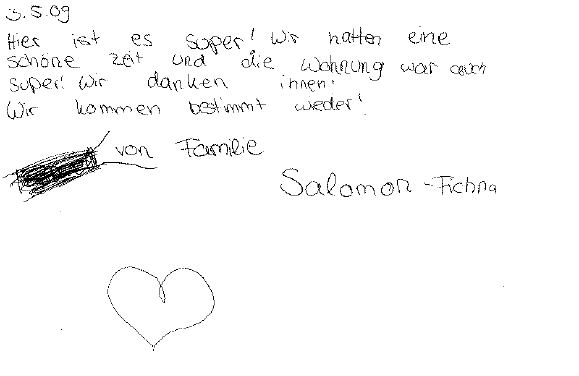 3.5.09
Hier ist es super! Wir hatten eine
schöne Zeit und die Wohnung war auch
super! Wir danken ihnen!
Wir kommen bestimmt wieder!
von Familie
Salomon - Fichna